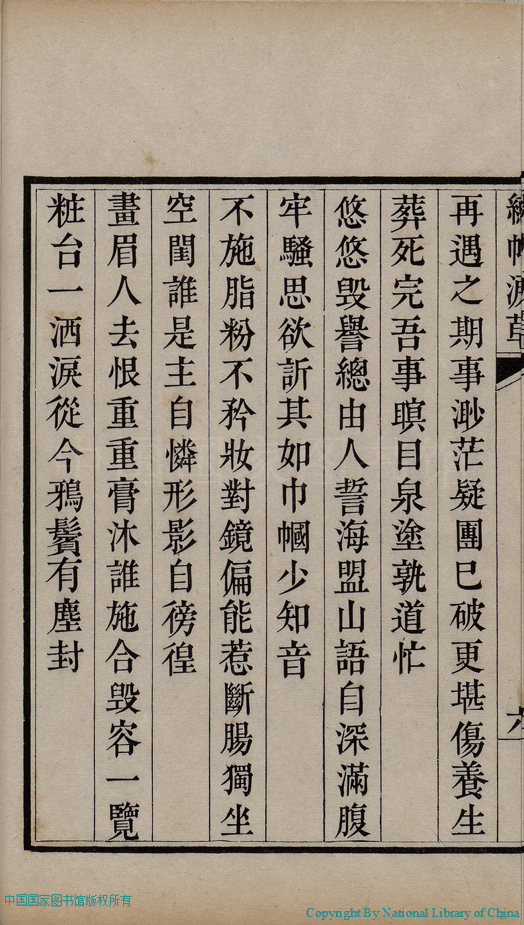 再遇之期事渺茫疑團已破更堪傷養生
葬死完吾事瞑目泉塗孰道忙
悠悠毀譽總由人誓海盟山語自深滿腹
牢騷思欲訴其如巾幗少知音
不施脂粉不矜妝對鏡偏能惹斷腸獨坐
空閨誰是主自憐形影自徬徨
畫眉人去恨重重膏沐誰施合毀容一覽
粧台一洒淚從今鴉鬢有塵封
中国国家图书馆版权所有
Copyright By National Library of China